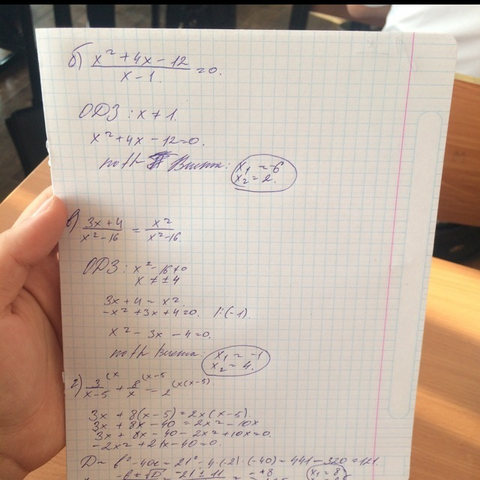 б) (x² + 4x - 12)/(x - 1) = 0.
ОДЗ: x ≠ 1.
x² + 4x - 12 = 0.
по th Виета: x₁ = -6
x₂ = 2.
в) (3x + 4)/(x² - 16) = x²/(x² - 16)
ОДЗ: x² - 16 ≠ 0
x ≠ ±4
3x + 4 = x².
-x² + 3x + 4 = 0. |:(-1)
x² - 3x - 4 = 0.
по th Виета x₁ = -1
x₂ = 4.
г) 3/(x - 5) (x + 8/x (x-5 = 2 (x(x-5)
3x + 8(x - 5) = 2x(x - 5).
3x + 8x - 40 = 2x² - 10x
3x + 8x - 40 - 2x² + 10x = 0.
-2x² + 21x - 40 = 0.
D = b² - 4ac = 21² - 4·(-2)·(-40) = 441 - 320 = 121
x₁ = 8